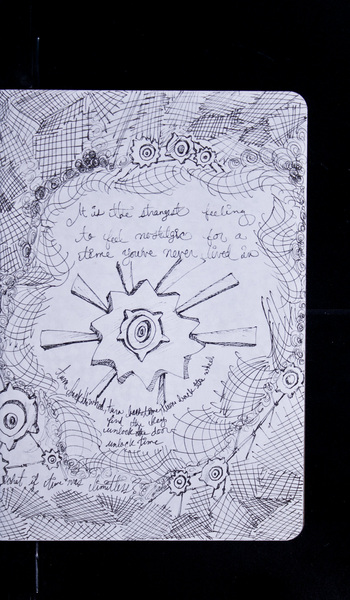 It is the strangest feeling
to feel nostalgic for a
time you've never lived in
turn back the wheel
find the key
unlock the door
unlock time
what if time was limitless